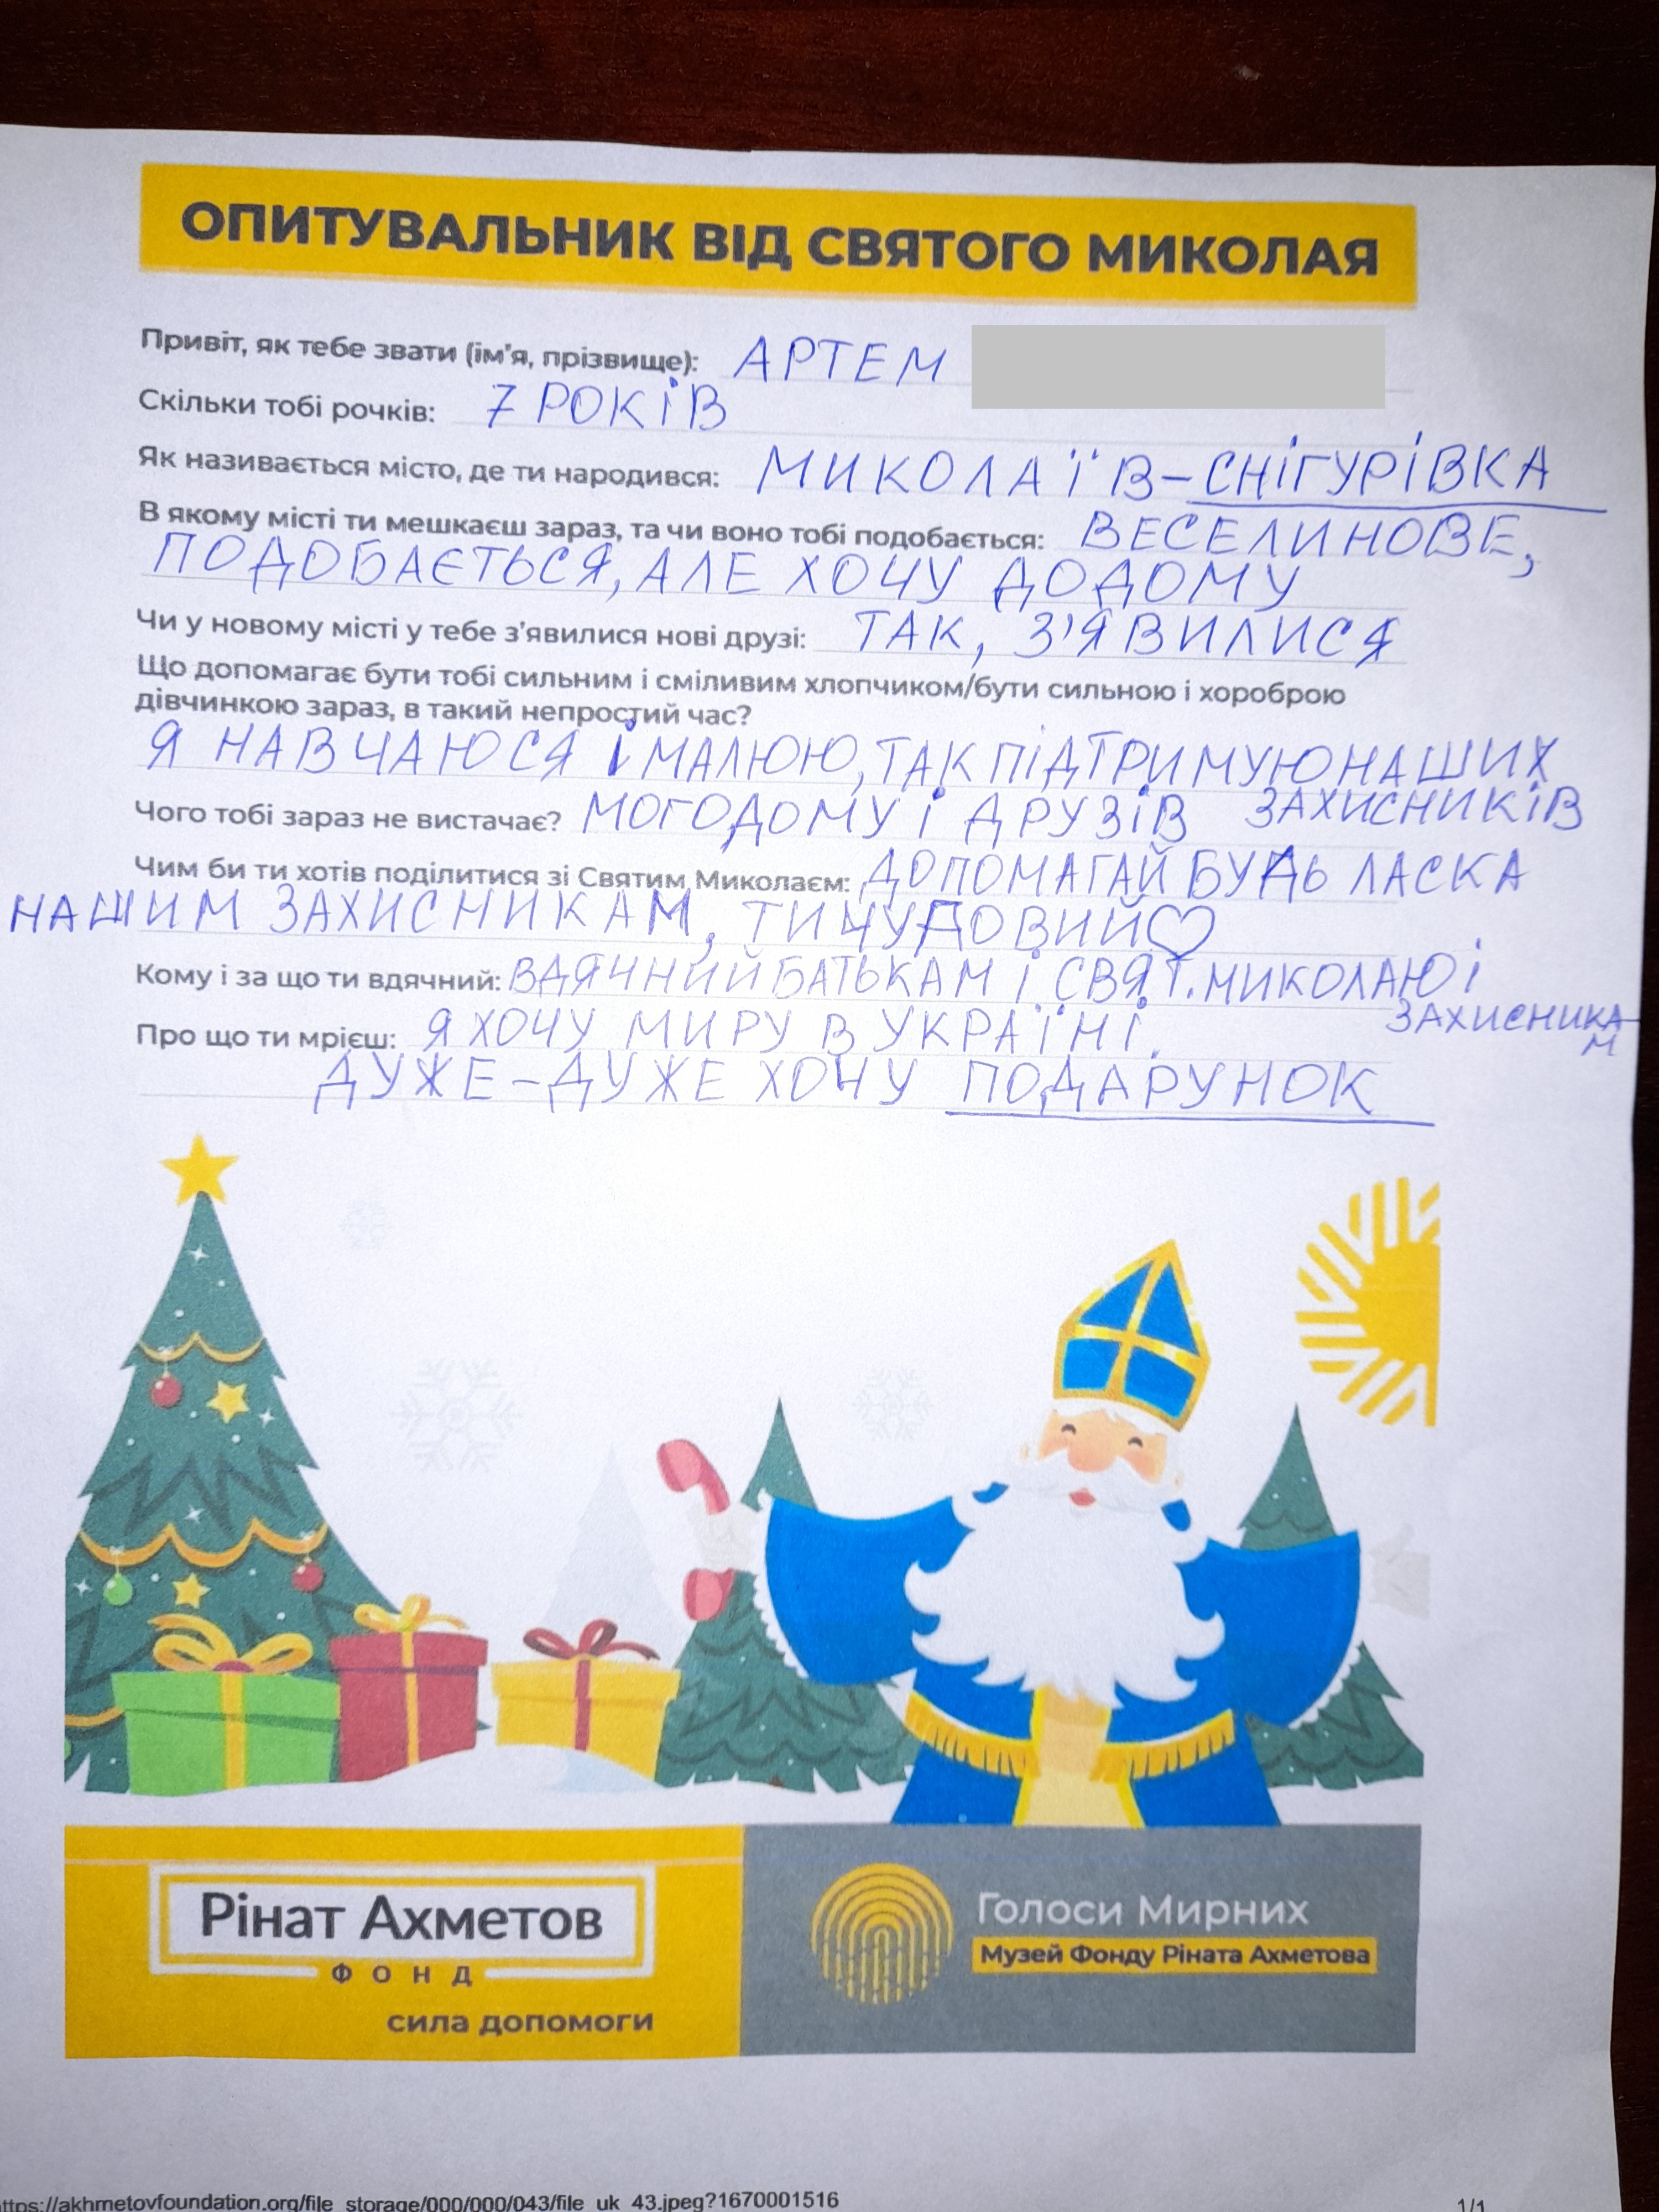 ОПИТУВАЛЬНИК ВІД СВЯТОГО МИКОЛАЯ
Привіт, як тебе звати (ім'я, прізвище): АРТЕМ
Скільки тобі рочків: 7 РОКІВ
Як називається місто, де ти народився: МИКОЛАЇВ-СНІГУРІВКА
В якому місті ти мешкаєш зараз, та чи воно тобі подобається: ВЕСЕЛИНОВЕ,
ПОДОБАЄТЬСЯ, АЛЕ ХОЧУ ДОДОМУ
Чи у новому місті у тебе з'явилися нові друзі: ТАК, З'ЯВИЛИСЯ
Що допомагає бути тобі сильним і сміливим хлопчиком/бути сильною і хороброю
дівчинкою зараз, в такий непростий час?
Я НАВЧАЮСЯ І МАЛЮЮ, ТАК ПІДТРИМУЮ НАШИХ
ЗАХИСНИКІВ
Чого тобі зараз не вистачає? МОГО ДОМУ І ДРУЗІВ
Чим би ти хотів поділитися зі Святим Миколаєм: ДОПОМАГАЙ БУДЬ ЛАСКА
НАШИМ ЗАХИСНИКАМ, ТИ ЧУДОВИЙ♡
Кому і за що ти вдячний: ВДЯЧНИЙ БАТЬКАМ І СВЯТ. МИКОЛАЮ І
ЗАХИСНИКА
М
Про що ти мрієш: Я ХОЧУ МИРУ В УКРАЇНІ.
ДУЖЕ-ДУЖЕ ХОЧУ ПОДАРУНОК
Рінат Ахметов
ФОНД
сила допомоги
Голоси Мирних
Музей Фонду Ріната Ахметова
ttps://akhmetovfoundation.org/file_storage/000/000/043/file_uk_43.jpeg?1670001516
1/1